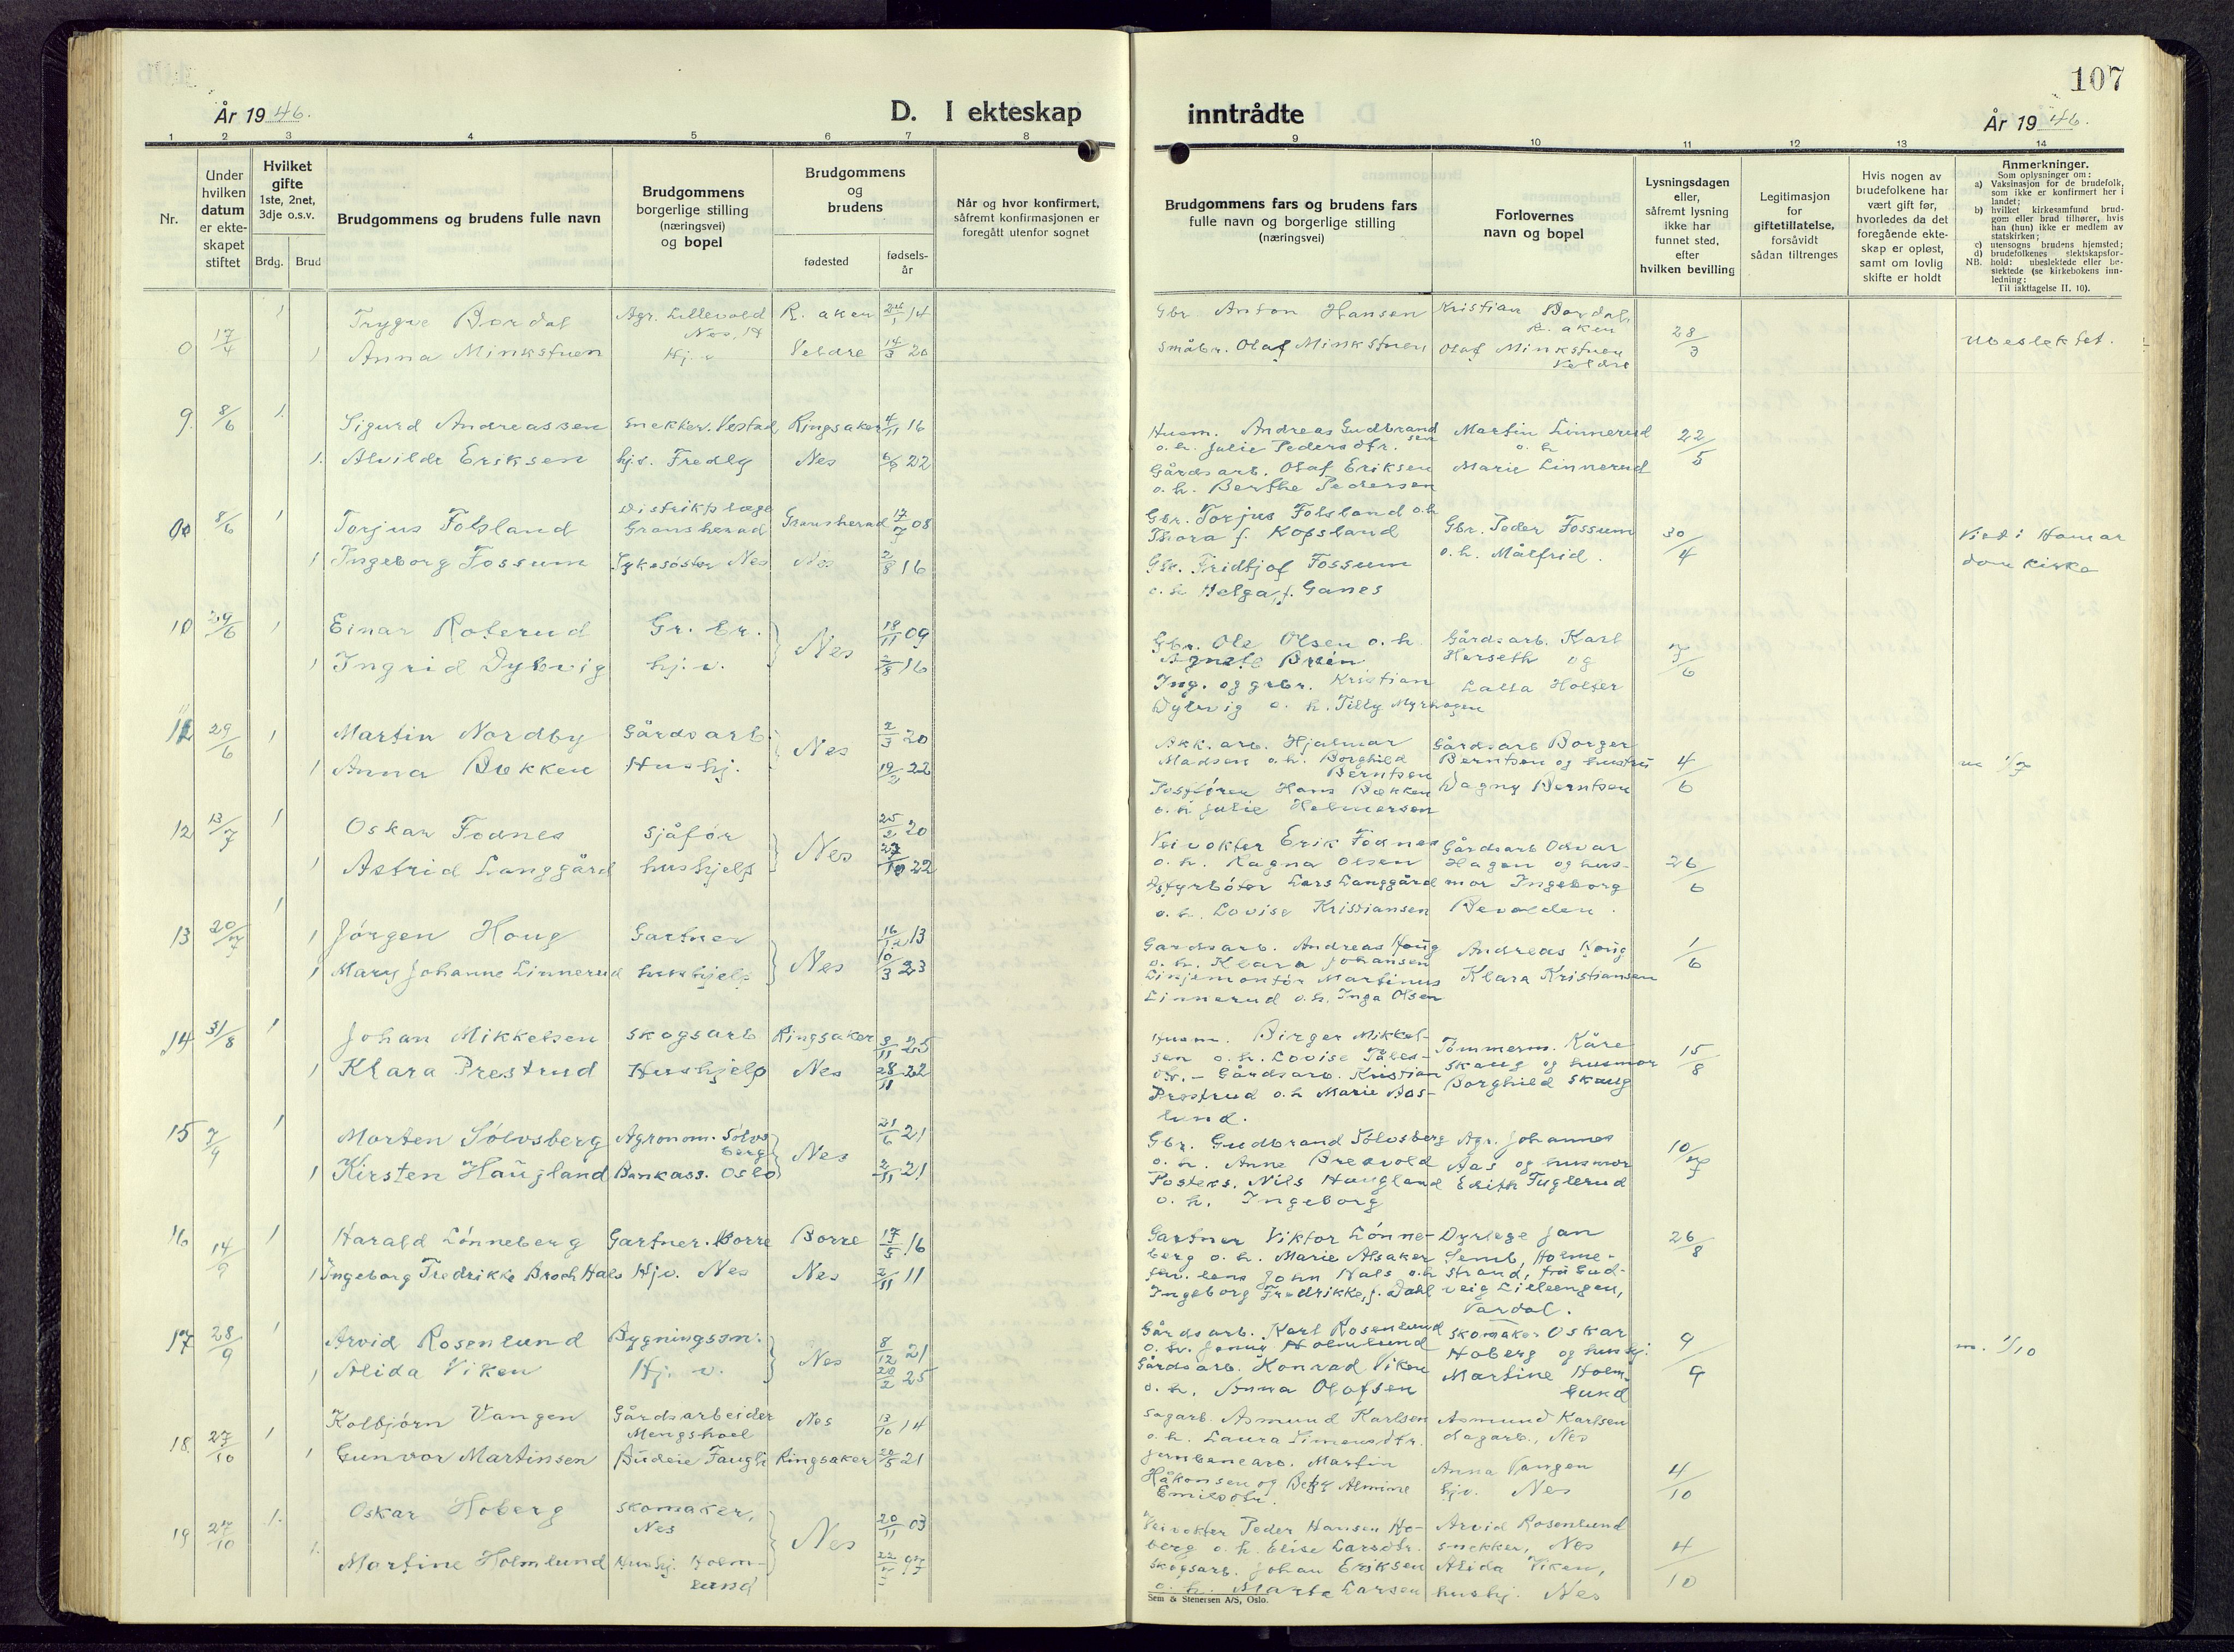 107
År 1946.
D. I ekteskap
inntrådte
År 1946.
1 2 3 4 5 6 7 8
9 10 11 12 13 14
Nr.
Under hvilken datum er ekteskapet stiftet
Hvilket gifte 1ste, 2net, 3dje o.s.v.
Brdg. Brud
Brudgommens og brudens fulle navn
Brudgommens borgerlige stilling (næringsvei) og bopel
Brudgommens og brudens
fødested
fødsels-år
Når og hvor konfirmert, såfremt konfirmasjonen er foregått utenfor sognet
Brudgommens fars og brudens fars fulle navn og borgerlige stilling (næringsvei)
Forlovernes navn og bopel
Lysningsdagen eller, såfremt lysning ikke har funnet sted, efter hvilken bevilling
Legitimasjon for giftetillatelse, forsåvidt sådan tiltrenges
Hvis nogen av brudefolkene har vært gift før, hvorledes da det foregående ekteskap er opløst, samt om lovlig skifte er holdt
Anmerkninger.
Som oplysninger om:
a) Vaksinasjon for de brudefolk, som ikke er konfirmert her i landet;
b) hvilket kirkesamfund brudgom eller brud tilhører, hvis han (hun) ikke er medlem av statskirken;
c) utensogns brudens hjemsted;
d) brudefolkenes slektskapsforhold: ubeslektede eller beslektede (se kirkebokens innledning:
NB.
Til iakttagelse II. 10).
17/4 1 Trygve Bordal Agr. Lillevold Nes, H R. aker 14
Gbr Anton Hansen Kristian Bordal, R. aker 28/3
1 Anna Minkstuen Hj. v Veldre 14/3 20
Småbr. Olaf Minkstuen Olaf Minkstuen Veldre ubeslektet.
9. 8/6 1. Sigurd Andreassen snekker. Vestad, Ringsaker 4/11 16
Husm. Andreas Gudbrandsen Martin Linnerud 22/5
o.h. Julie Pedersdtr. o. h
1. Alvilde Eriksen hjv. Fredly Nes 22
Gårdsarb. Olaf Eriksen Marie Linnerud
o.h. Berthe Pedersen
8/6 1 Torjus Folsland Distriktslege Gransherad Gransherad 17/7 08
Gbr. Torjus Folsland o.h Gbr. Peder Fossum 30/4 Viet i Hamar
Thora f. Kopsland o.h. Målfrid. dom kirke
1 Ingeborg Fossum Sykesøster Nes Nes 2/8 16
Gbr. Fridtjof Fossum
o.h Helga, f. Ganes
10 29/6 1 Einar Roterud Gr. br. Nes 18/11 09
Gbr. Ole Olsen o.h Gårdsarb. Karl 7/6
Agnete Breen Herseth og
1 Ingrid Dybvig hj. v. 2/8 16
Ing. og grbr. Kristian Lalla Holter
Dybvig o. h. Tilly Myrhagen
11 29/6 1 Martin Nordby Gårdsarb. Nes 2/3 20
Akk. arb. Hjalmar Gårdsarb Borger 4/6
Madsen o.h. Borghild Berntsen Berntsen og hustru
1 Anna Bekken Hushj. 22
Hans Bekken Dagny Berntsen
o.h Julie Helmersen
12 13/7 1 Oskar Fodnes Sjåfør Nes 25/2 20
Veivokter Erik Fodnes Gårdsarb Odvar 26/6
o.h. Ragna Olsen Hagen og hus-
1 Astrid Langgård hushjelp 27/10 22
Lars Langgård mor Ingeborg
o.h. Lovise Kristiansen
13 20/7 1 Jørgen Houg Gartner Nes 16/12 13
Gardsarb. Andreas Houg Andreas Houg 1/6
o.h. Klara Johansen
1 Mary Johanne Linnerud hushjelp 10/3 23
Linjemontør Martinus Klara Kristiansen
Linnerud o.h. Inga Olsen
14 31/8 1 Johan Mikkelsen skogsarb Ringsaker 3/11 25
Husm. Birger Mikkel- Tømmerm. Kåre 15/8
sen o.h. Lovise Skaug og husmor
1 Klara Prestrud Hushjelp Nes 28/11 22
Gårdsarb. Kristian Borghild Skaug
Prestrud o.h Marie Aas-
lund.
15 7/9 1 Morten Sølvsberg Agronom. Sølvsberg Nes 21/6 21
Gbr. Gudbrand Sølvsberg Agr. Johannes 10/7
o.h. Anne Brevold Aas og husmor
1 Kirsten Haugland Bankass. Oslo 2/11 21
Posteks. Nils Haugland Edith Fuglerud
o.h. Ingeborg
16 14/9 1 Harald Lønneberg Gartner. Borre Borre 17/5 16
Gartner Viktor Lønne- Dyrlege Jan 26/8
berg o.h. Marie Alsaker Semb, Holme-
1 Ingeborg Fredrikke Broch Hals Hjv. Nes Nes 2/11 11
John Hals o.h strand, fru Gud-
Ingeborg Fredrikke, f. Dahl veig Lilleengen,
Vardal.
17 28/9 1 Arvid Rosenlund Bygningssn. Nes 8/12 21
Gårdsarb. Karl Rosenlund skomaker Oskar 9/9 m. 1/10
o.h. Jenny Holmlund Hoberg og hushj.
1 Alida Viken Hj. v. 20/2 25
Gårdsarb. Konrad Viken Martine Holm-
o.h. Anna Olafsen lund
18. 27/10 1 Kolbjørn Vangen Gårdsarbeider Mengshoel Nes 13/10 14
Sagarb. Asmund Karlsen Asmund Karlsen
o.h. Laura Simensdtr. Sagarb., Nes
1 Gunvor Martinsen Budeie Faugli Ringsaker 21
Jernbanearb. Martin Anna Vangen 4/10
Håkonsen og Betzy Almine hjv. Nes
Emilsdtr.
19 27/10 1. Oskar Hoberg skomaker, Nes Nes 20/11 03
Veivokter Peder Hansen Ho- Arvid Rosenlund
berg o.h. Elise Larsdtr. snekker, Nes 4/10
1. Martine Holmlund Hushj. Holmlund 97
Skogsarb. Johan Eriksen Alida Viken,
o.h. Marte Larsen hushj. Nes
Sem & Stenersen A/S, Oslo.